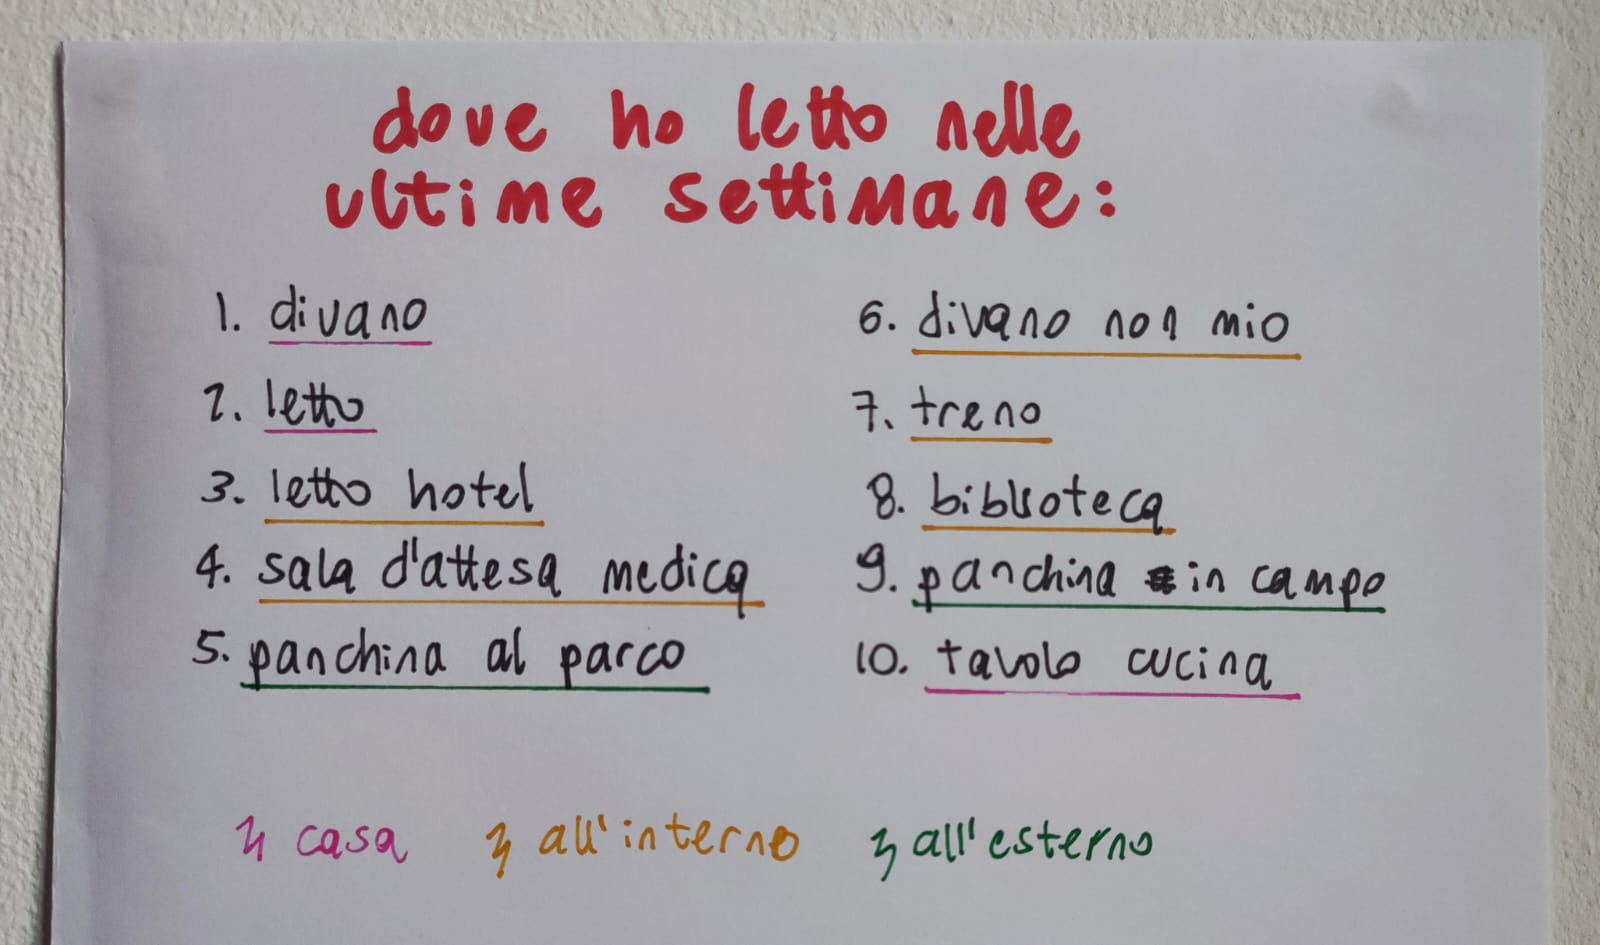 dove ho letto nelle
ultime settimane:
1. divano
2. letto
3. letto hotel
4. sala d'attesa medica
5. panchina al parco
6. divano non mio
7. treno
8. biblioteca
9. panchina in campo
10. tavolo cucina
casa
all'interno
all'esterno